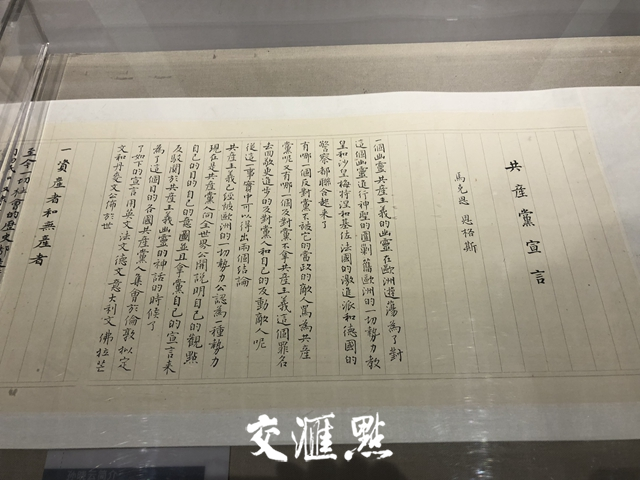 共產黨宣言
馬克思 恩格斯
一個幽靈共產主義的幽靈在歐洲遊蕩為了對
這個幽靈進行神聖的圍剿舊歐洲的一切勢力教
皇和沙皇梅特涅和基佐法國的激進派和德國的
警察都聯合起來了
有哪一個反對黨不被它的當政的敵人罵為共產
黨呢又有哪一個反對黨不拿共產主義這個罪名
去回敬更進步的反對黨人和自己的反動敵人呢
從這一事實中可以得出兩個結論
共產主義已經被歐洲的一切勢力公認為一種勢力
現在是共產黨人向全世界公開說明自己的觀點
自己的目的自己的意圖並且拿黨自己的宣言來
反駁關於共產主義幽靈的神話的時候了
為了這個目的各國共產黨人集會於倫敦擬定
了如下的宣言用英文法文德文意大利文佛拉芒
文和丹麥文公佈於世
一 資產者和無產者
至今一切社會的歷史都是
交滙點